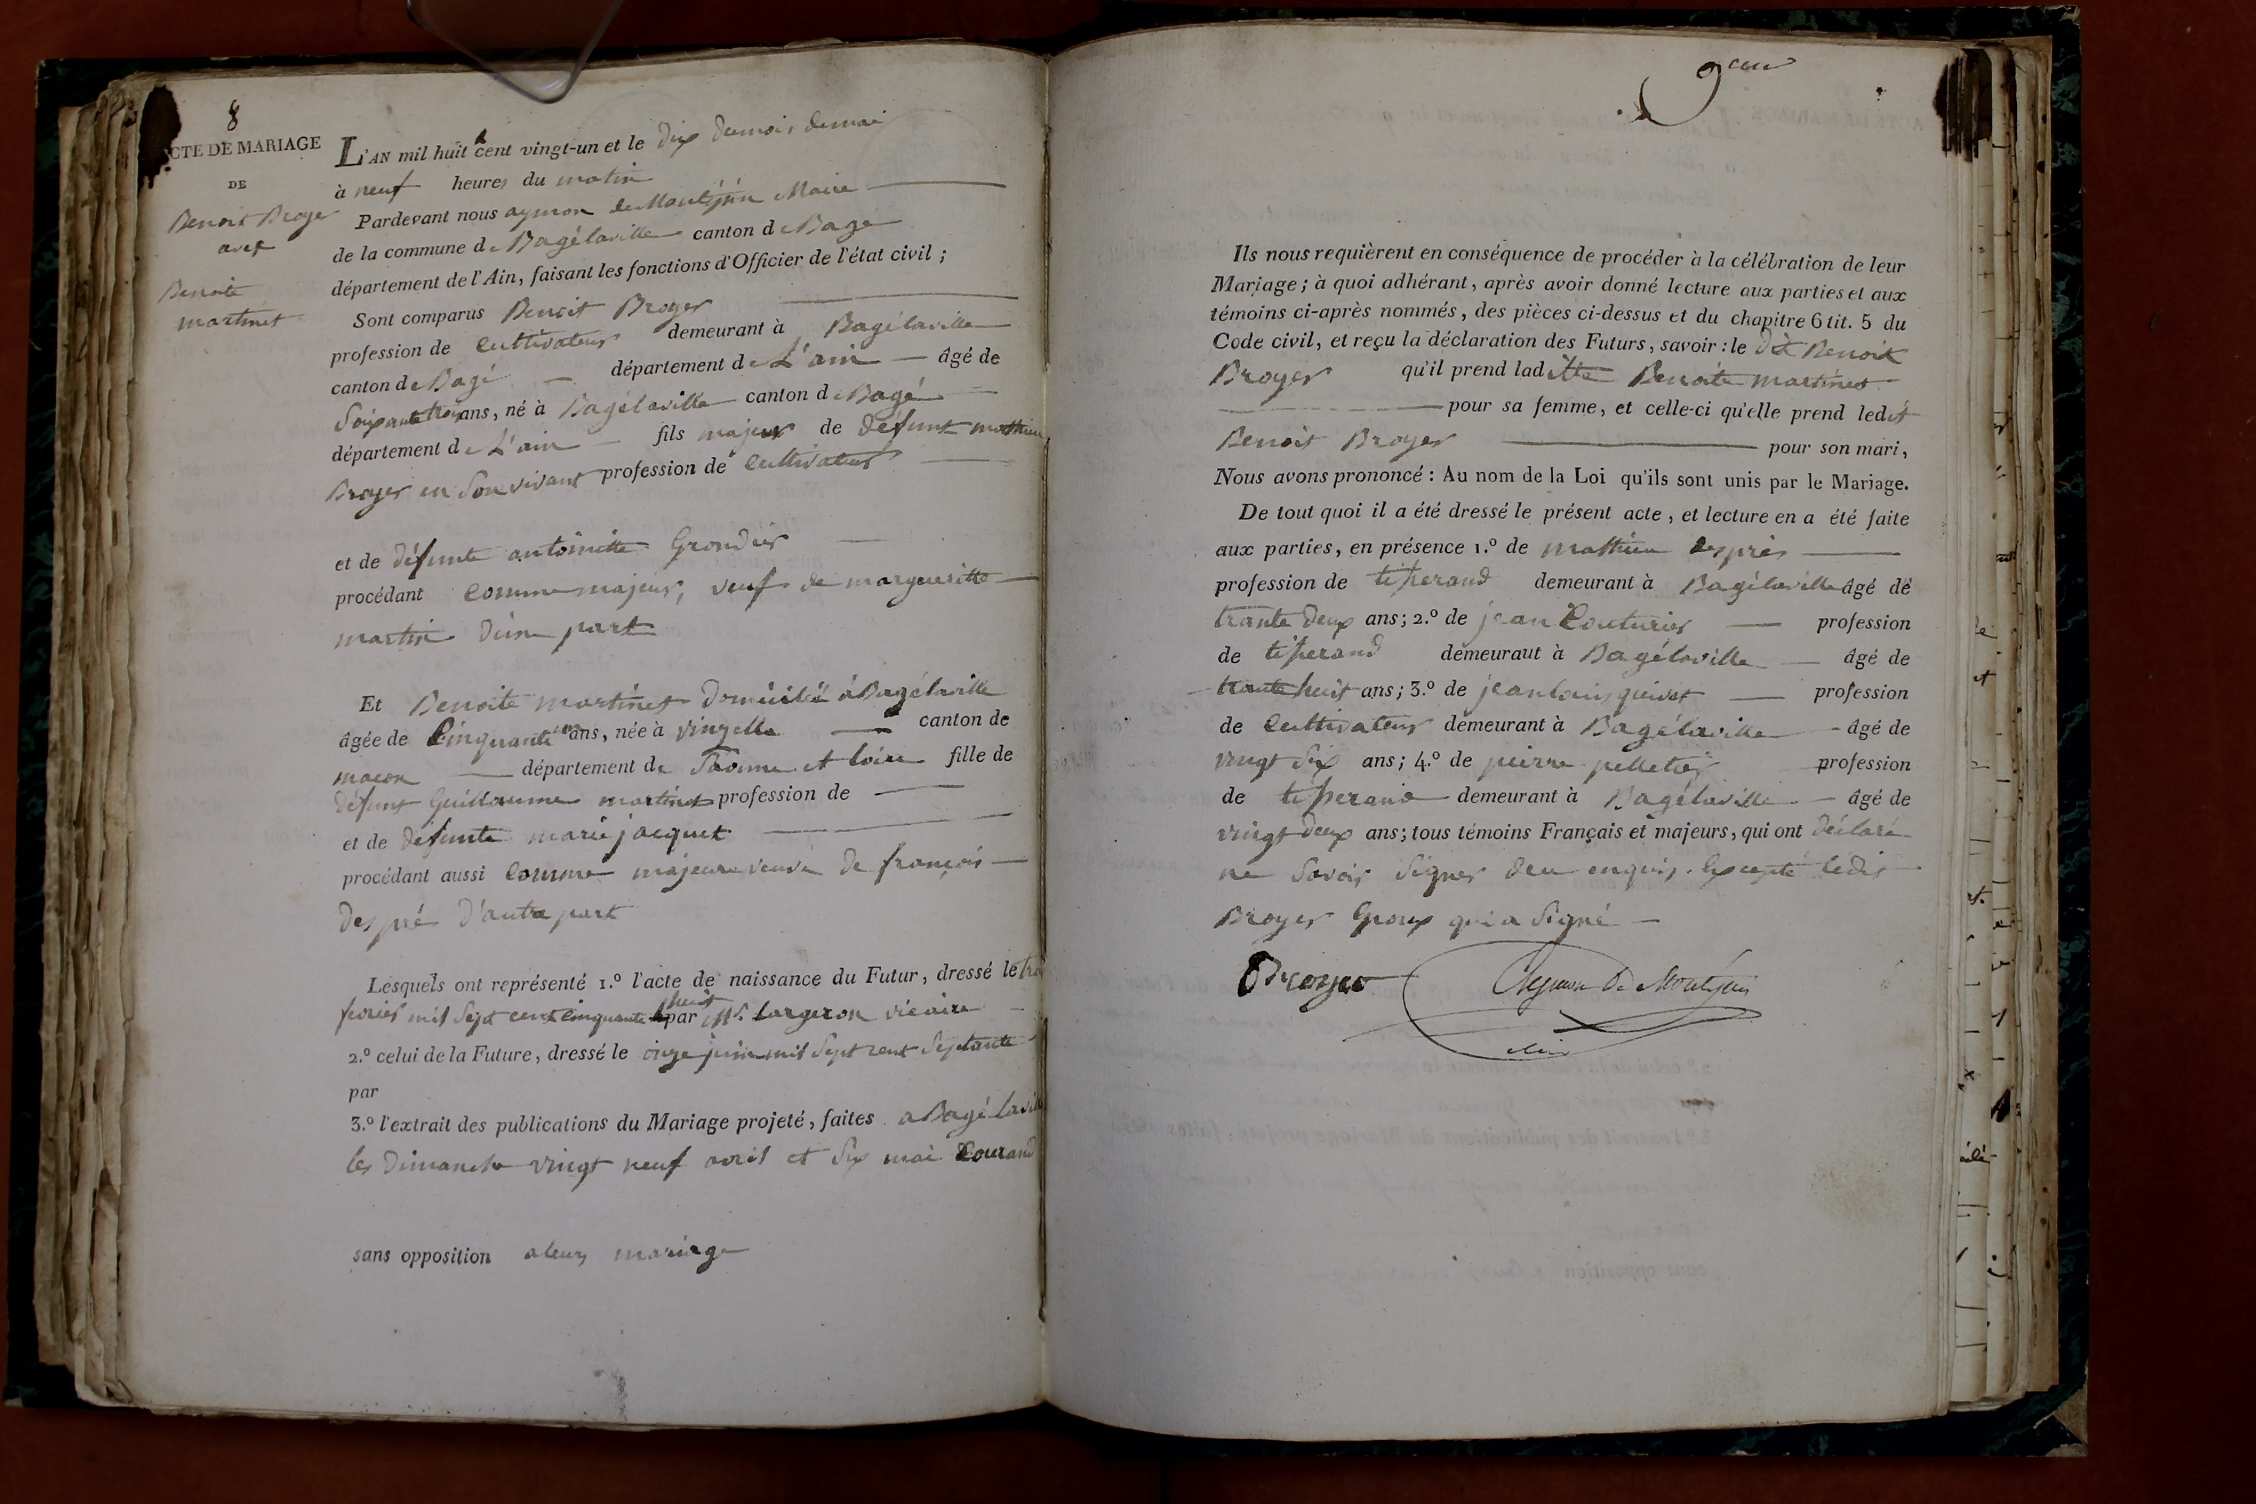 8
ACTE DE MARIAGE
DE
Benoit Broyer
avec
Benoite
martinet
L'AN mil huit cent vingt-un et le dix du mois de mai
à neuf heures du matin
Pardevant nous aymon de Montépin Maire
de la commune de Bagélaville canton de Bagé
département de l'Ain, faisant les fonctions d'Officier de l'état civil ;
Sont comparus Benoit Broyer
profession de cultivateur demeurant à Bagélaville
canton de Bagé département de L'ain âgé de
soixante trois ans, né à Bagélaville canton de Bagé
département de L'ain fils majeur de défunt mathieu
Broyer en son vivant profession de cultivateur
et de défunte antoinette Grondier
procédant comme majeur, veuf de margueritte
martin d'une part
Et Benoite martinet domiciliée à Bagélaville
âgée de cinquante un ans, née à vinzelle canton de
macon département de Saonne et loire fille de
défunt Guillaume martinet profession de
et de défunte marie jacquet
procédant aussi comme majeure veuve de françois
després d'autre part
Lesquels ont représenté 1.º l'acte de naissance du Futur, dressé le trois
fevrier mil sept cent cinquante huit par Mr. Largeron vicaire
2.º celui de la Future, dressé le onze juin mil sept cent septante
par
3.º l'extrait des publications du Mariage projeté, faites a Bagélaville
les dimanche vingt neuf avril et six mai courand
sans opposition a leur mariage
9eme
Ils nous requièrent en conséquence de procéder à la célébration de leur
Mariage ; à quoi adhérant, après avoir donné lecture aux parties et aux
témoins ci-après nommés, des pièces ci-dessus et du chapitre 6 tit. 5 du
Code civil, et reçu la déclaration des Futurs, savoir : le dit Benoit
Broyer qu'il prend laditte Benoite martinet
pour sa femme, et celle-ci qu'elle prend ledit
Benoit Broyer pour son mari,
Nous avons prononcé : Au nom de la Loi qu'ils sont unis par le Mariage.
De tout quoi il a été dressé le présent acte, et lecture en a été faite
aux parties, en présence 1.º de mathieu després
profession de tisserand demeurant à Bagélaville âgé de
trante deux ans ; 2.º de jean Couturier profession
de tisserand demeuraut à Bagélaville âgé de
trante huit ans ; 3.º de jean louis guivet profession
de cultivateur demeurant à Bagélaville âgé de
vingt six ans ; 4.º de peirre pelletier profession
de tisserand demeurant à Bagélaville âgé de
vingt deux ans ; tous témoins Français et majeurs, qui ont déclaré
ne savoir signer de ce enquis. Excepté ledit
Broyer Epoux qui a signé
Broyer Aymon De Montépin